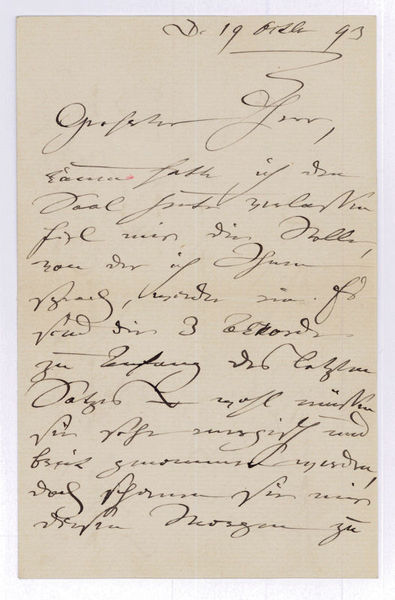 D. 19 Octb 93
Geehrter Herr,
kaum hatte ich den
Saal heute verlassen
fiel mir die Stelle,
von der ich Ihnen
sprach, wieder ein. Es
sind die 3 Akkorde
zu Anfang des letzten
Satzes wohl müssen
sie sehr energisch und
breit genommen werden,
doch schienen sie mir
diesen Morgen zu